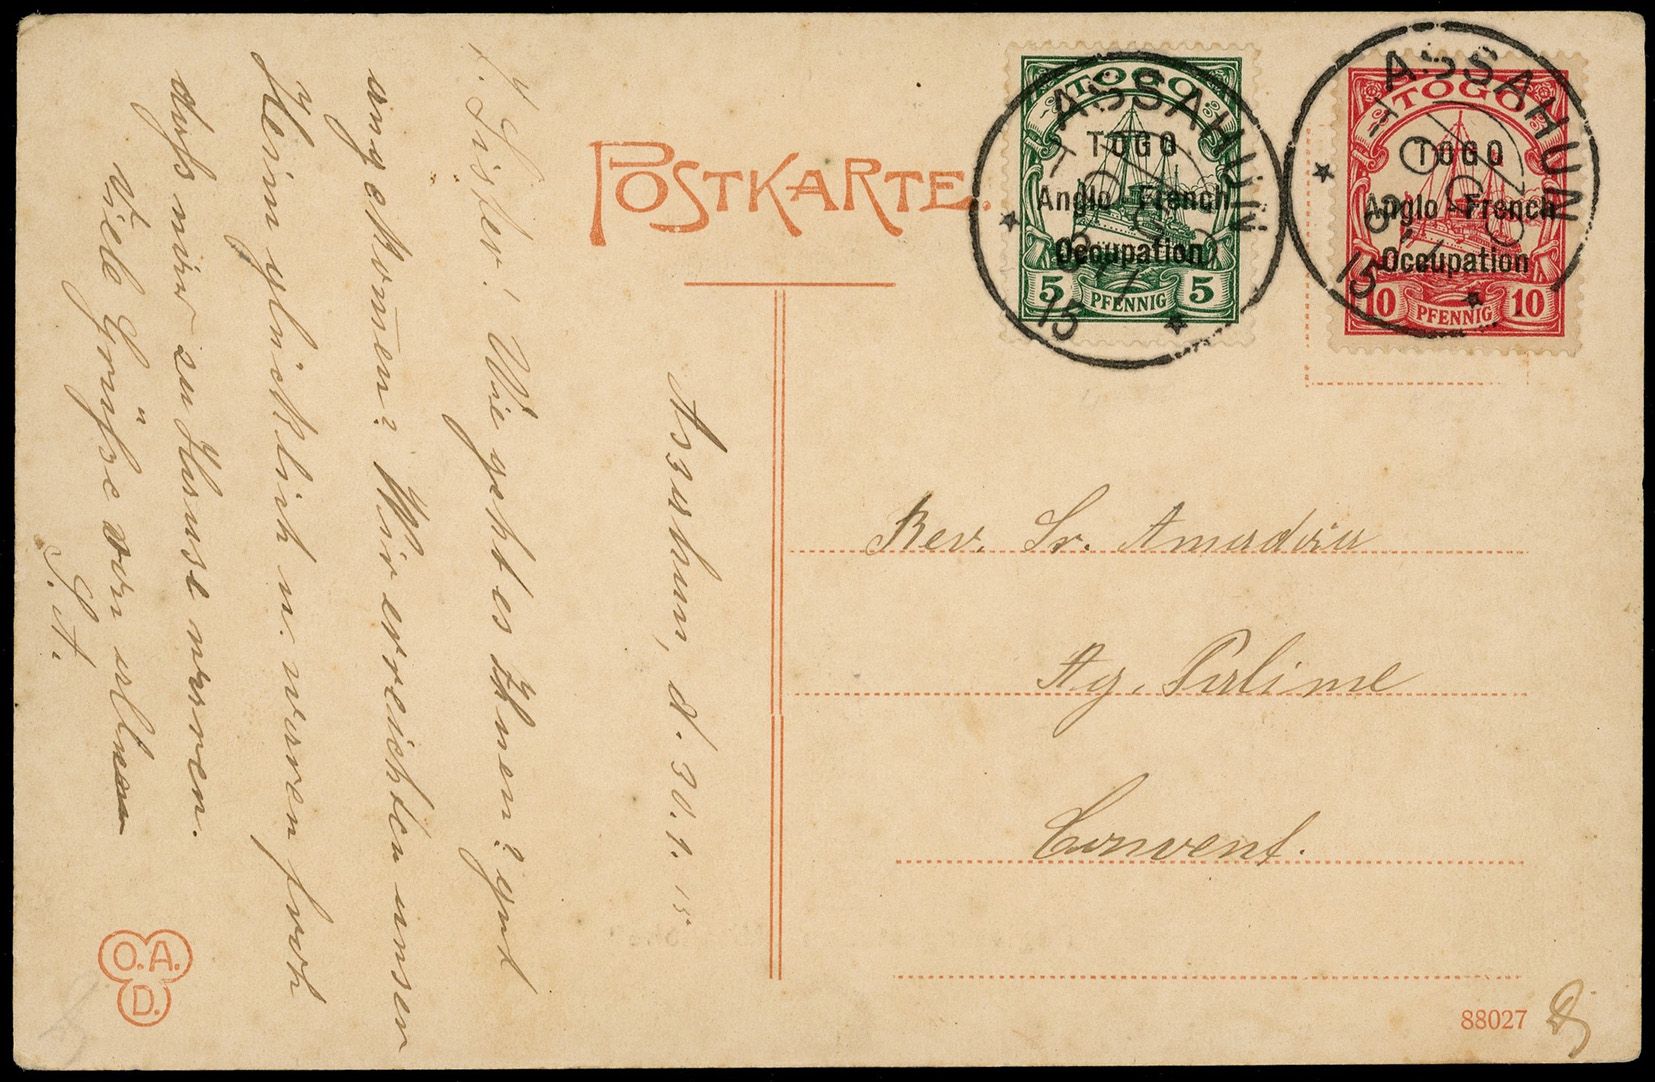 POSTKARTE.
TOGO
TOGO
Anglo-French
Occupation
5 PFENNIG 5
ASSAHUN
TOGO
15
TOGO
TOGO
Anglo-French
Occupation
10 PFENNIG 10
ASSAHUN
TOGO
15
Assahun, d. 30.9.15
Sister! Wie geht es Ihnen? gut
angekom̄en? Wir erreichten unser
Heim glücklich u. waren froh
daß wir zu Hause waren.
Viele Grüße von allen
S. A.
Rev. Sr. Amadéa
Ag. Palime
Convent.
O.A.
D.
88027